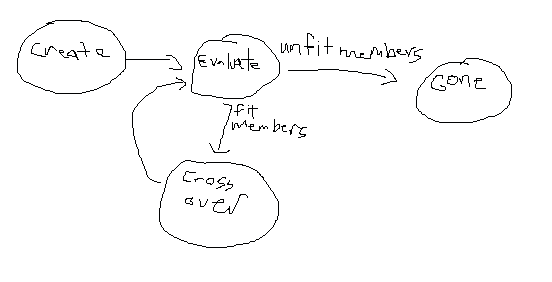 Create
Evaluate
unfit members
Gone
fit
members
Cross
over